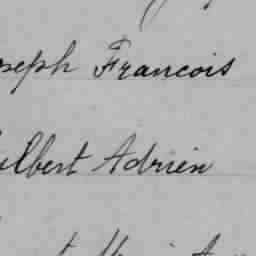 oseph Francois
ulbert Adrien